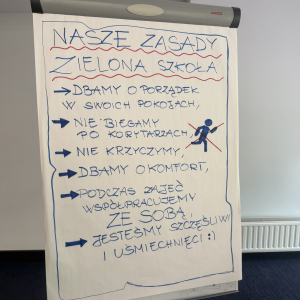 NASZE ZASADY
ZIELONA SZKOŁA
DBAMY O PORZĄDEK
W SWOICH POKOJACH,
NIE BIEGAMY
PO KORYTARZACH,
NIE KRZYCZYMY,
DBAMY O KOMFORT,
PODCZAS ZAJĘĆ
WSPÓŁPRACUJEMY
ZE SOBĄ,
JESTEŚMY SZCZĘŚLIWI
I UŚMIECHNIĘCI :)